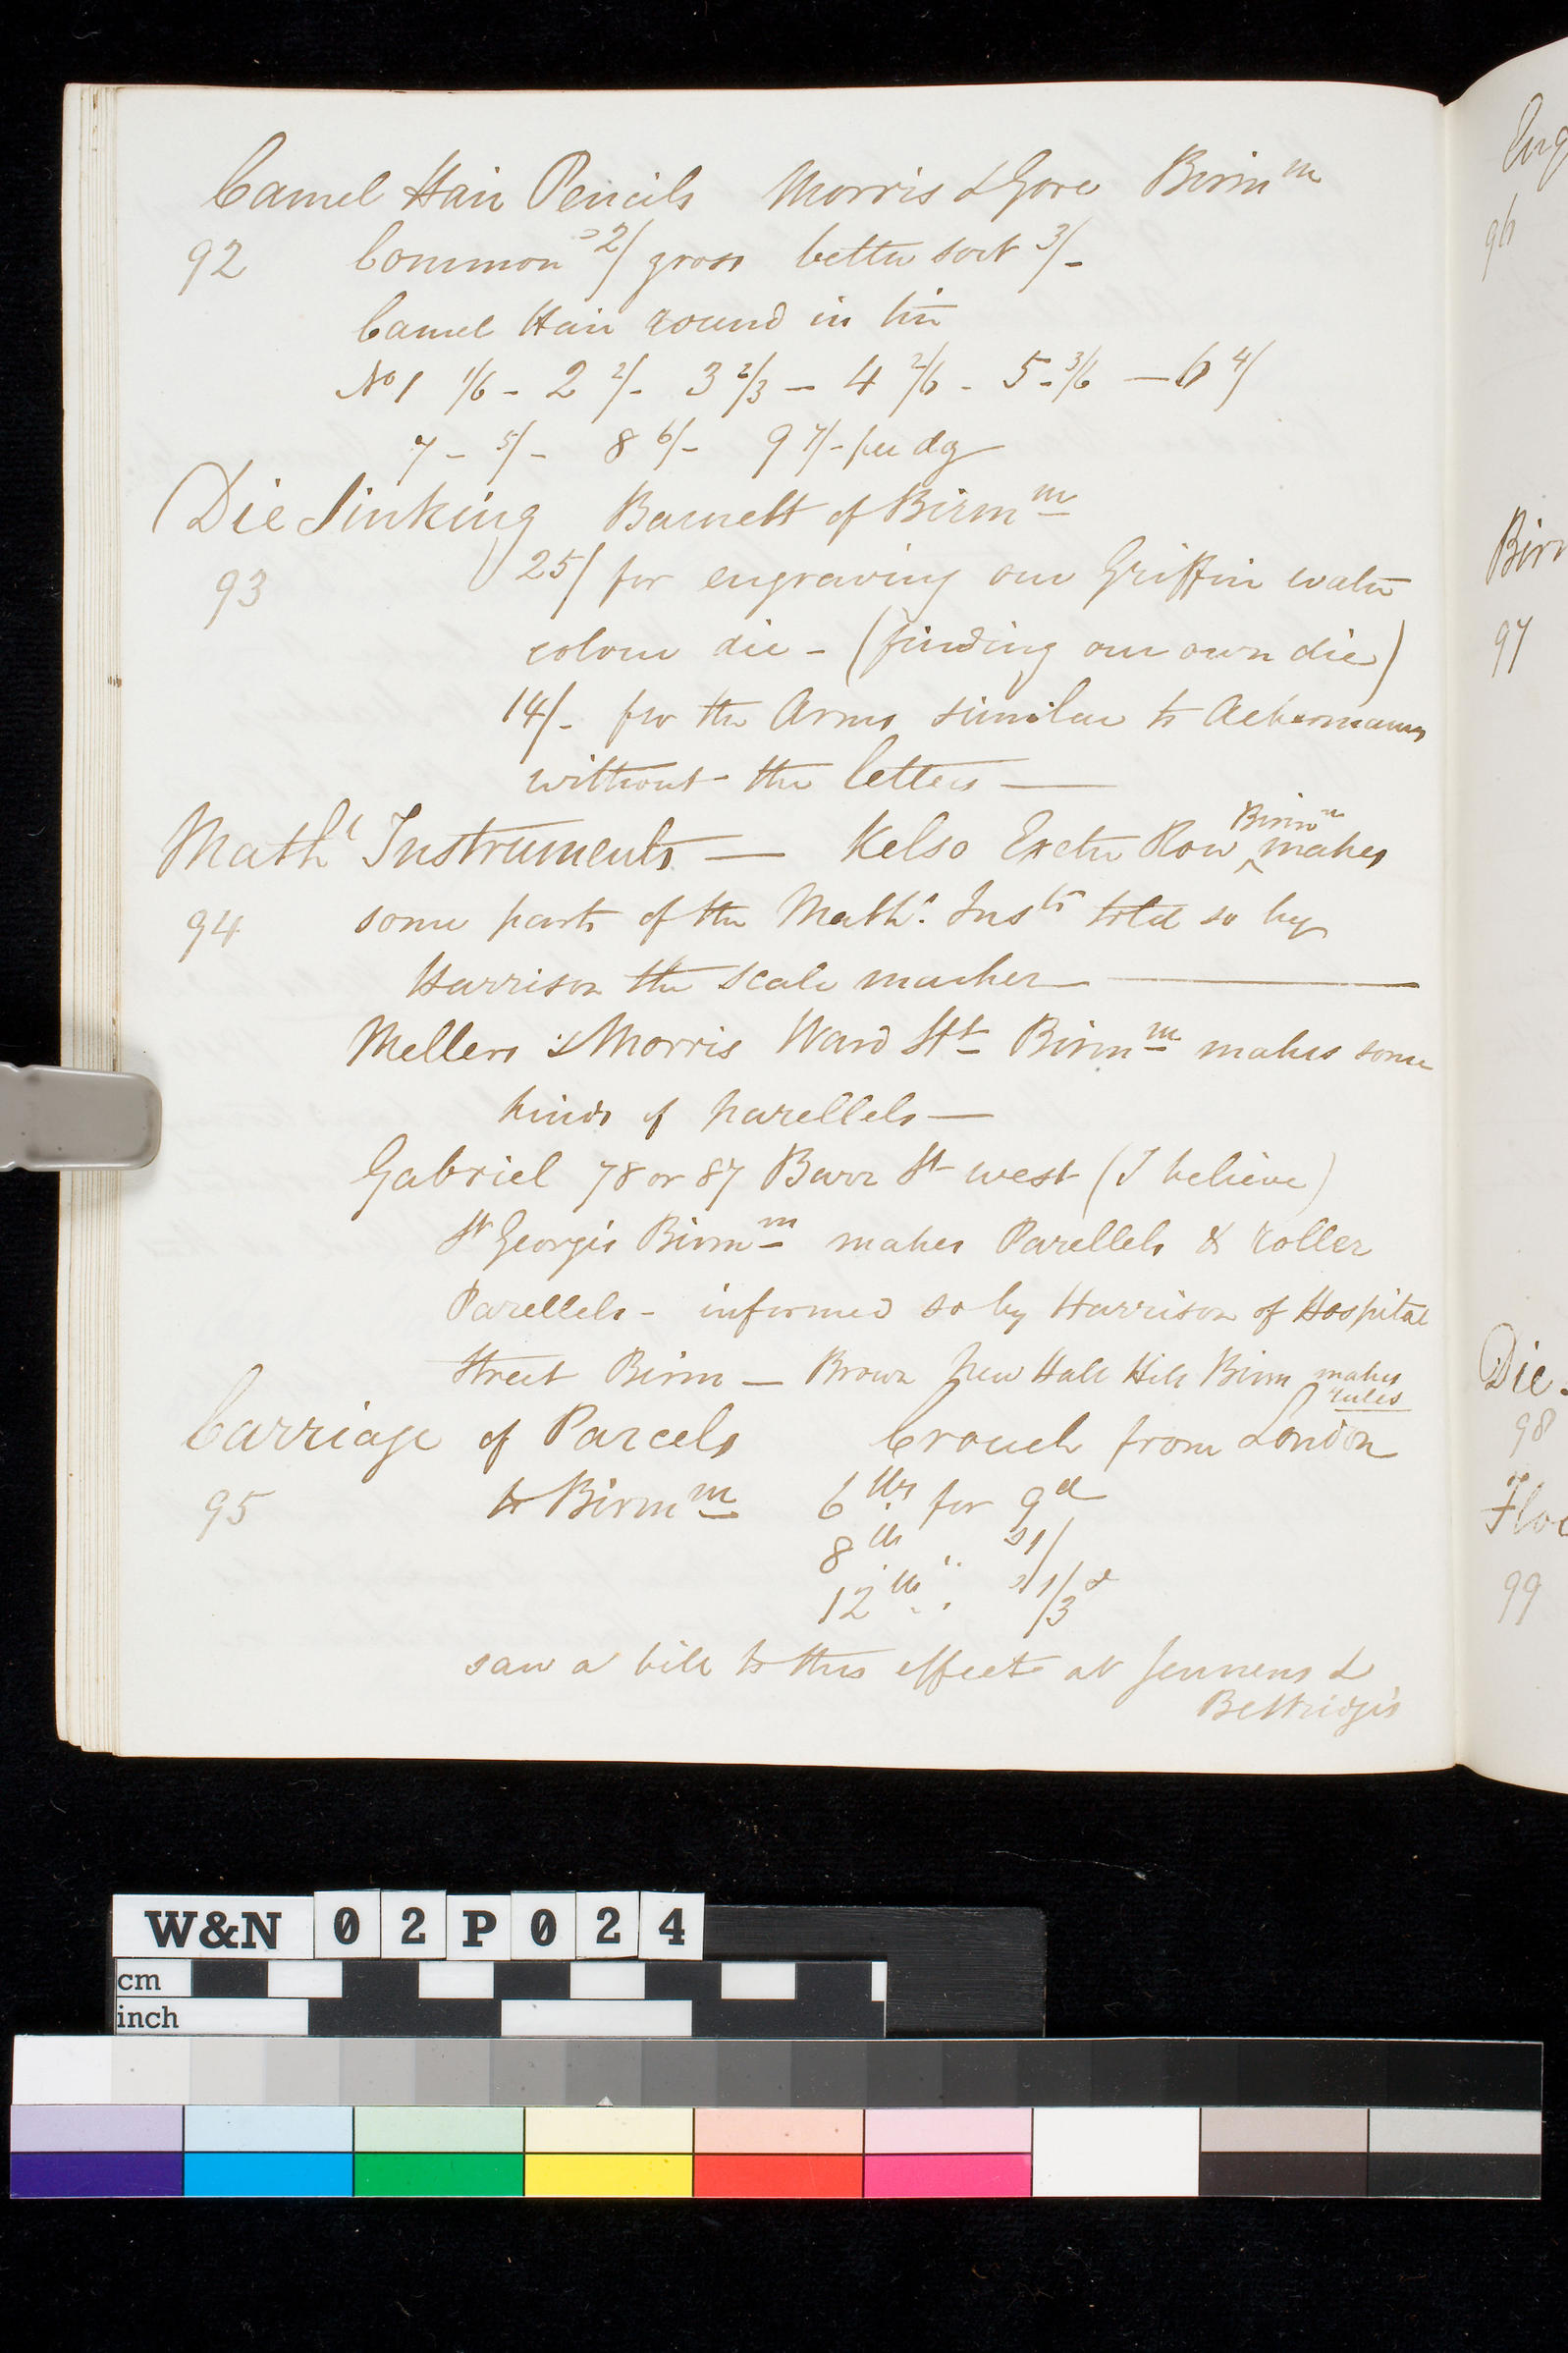 Camel Hair Pencils Morris & Gore Birmm
92 Common 2/ gross better sort 3/-
Camel Hair round in tin
No 1 1/6 - 2 2/- 3 2/3 - 4 2/6 - 5 - 3/6 - 6 4/
7 - 5/- 8 6/- 9 7/- per dz
Die Sinking Barnett of Birmm
93 25/ for engraving our Griffin water
colour die - (finding our own die)
14/- for the Arms similar to Ackermanns
without the letters —
Birmm
Mathl Instruments — Kelso Exeter Row ^ makes
94 some parts of the Mathl. Insts told so by
Harrison the scale marker —
Mellers & Morris Ward St Birmm makes some
kinds of parellels —
Gabriel 78 or 87 Barr St west (I believe)
St Georges Birmm makes Parellels & roller
Parellels - informed so by Harrison of Hospital
Street Birm — Brown New Hall Hill Birm makes
rules
Carriage of Parcels Crouch from London
95 to Birmm 6 lbs for 9d
8 lb " 1/
12 lb " " 1/3d
saw a bill to this effect at Jennens &
Bettridge's
Eng
96
Birm
97
Die
98
Flo
99
W&N 0 2 P 0 2 4
cm
inch